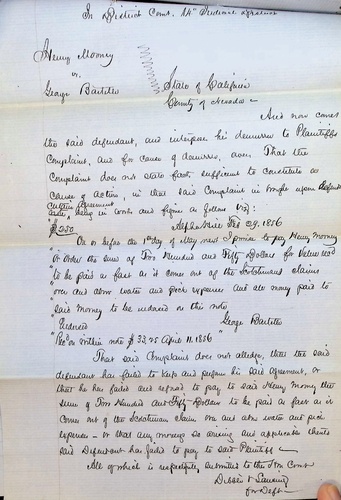 In District Court. 14th Judicial District
Henry Mooney
vs.
George Bartlett
State of California
County of Nevada
And now comes
the said defendant, and interposes his demurrer to Plaintiffs
Complaint, and for cause of demurrer, avers That the
Complaint does not state facts sufficient to constitute a
Cause of Action, in that said Complaint is brought upon
certain agreement
being in words and figures as follows viz:
$250. Feb 29, 1856
On or before the 1st day of May next I promise to pay Henry Mooney
or Order the sum of Two Hundred and Fifty Dollars for Value recd
to be paid as fast as it comes out of the Scotchman claims
over and above water and pick expenses and all money paid to
said Mooney to be indorsed on this note
Indorsed George Bartlett
"Rec'd on within note $32.25 April 11. 1856"
That said Complaint does not alledge, that the said
defendant has failed to keep and perform his said agreement, or
that he has failed and refused to pay to said Henry Mooney the
sum of Two Hundred and Fifty Dollars to be paid as fast as it
comes out of the Scotchman claim over and above water and pick
expenses - or that any moneys so arising and applicable thereto
said Defendant has failed to pay to said Plaintiff
All of which is respectfully submitted to the Hon Court
for Deft.